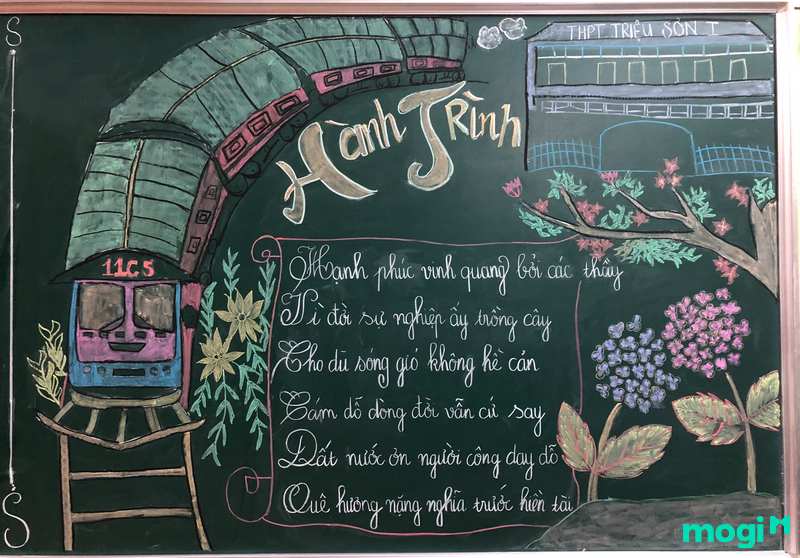 THPT TRIỆU SƠN I
Hành Trình
11C5
Hạnh phúc vinh quang bởi các thầy
Vì đời sự nghiệp ấy trồng cây
Cho dù sóng gió không hề cản
Cám dỗ dòng đời vẫn cứ say
Đất nước ơn người công dạy dỗ
Quê hương nặng nghĩa trước hiền tài
mogi